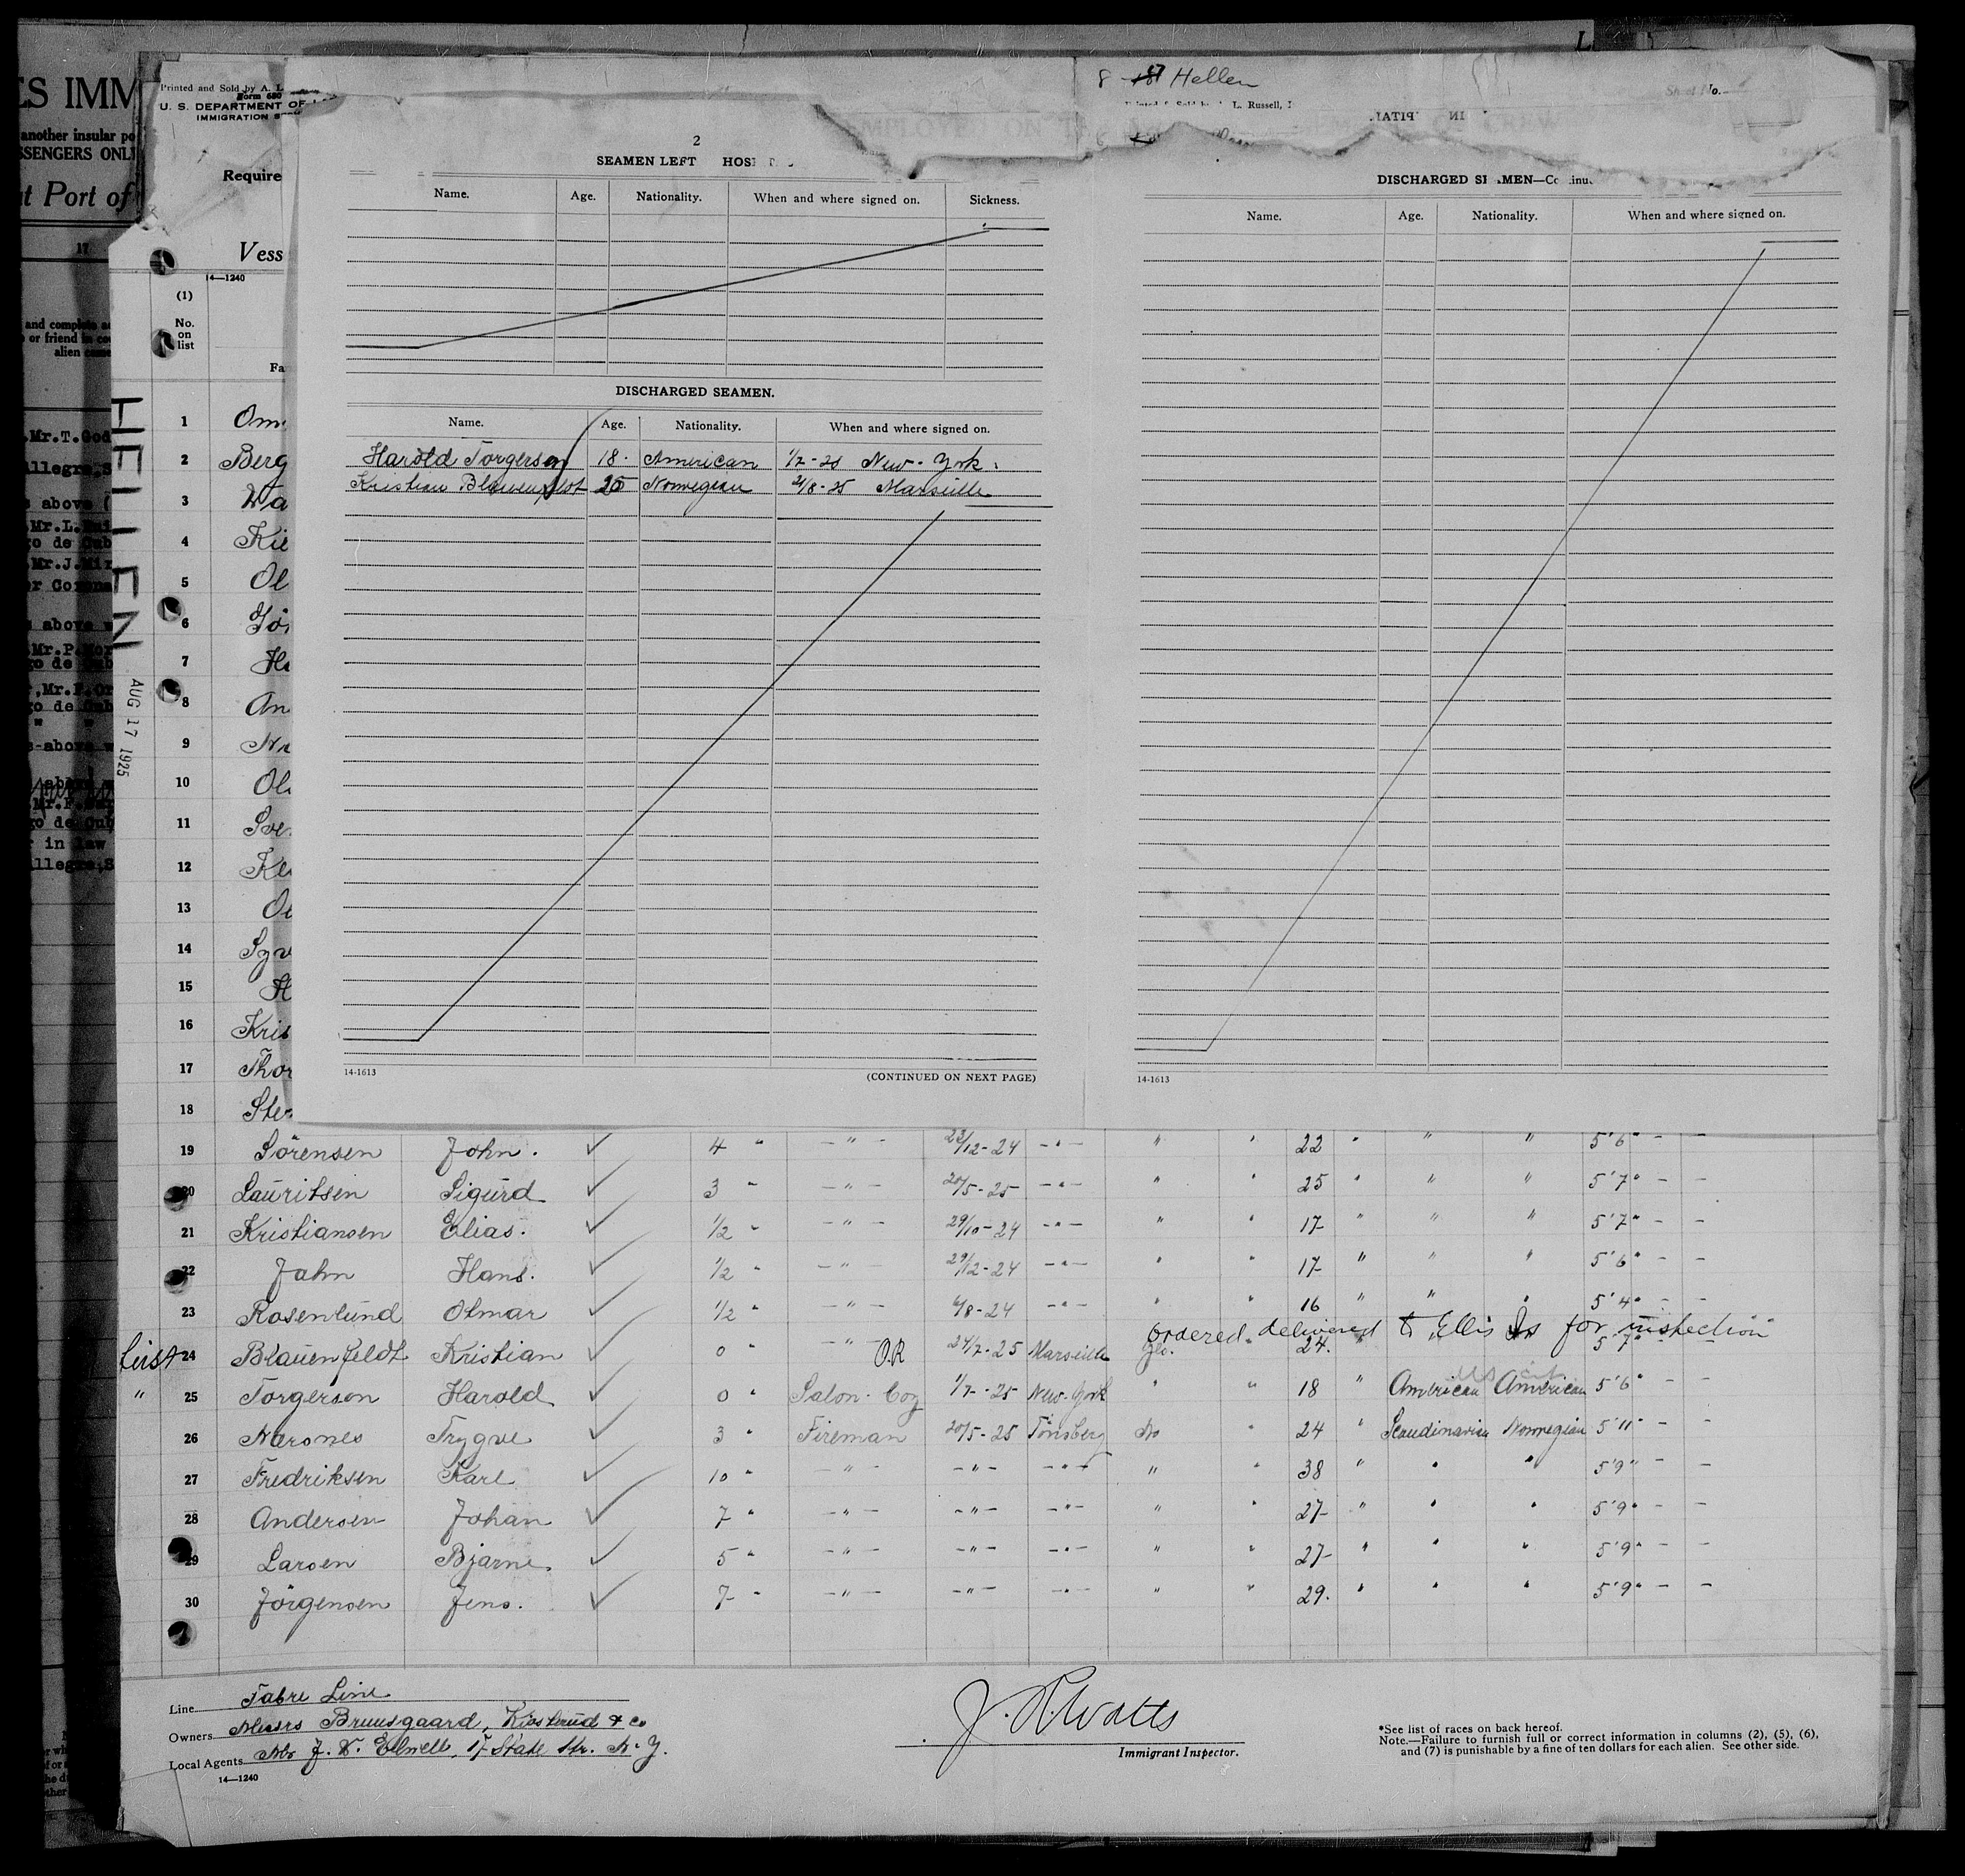 ES IMM
another insular po
SSENGERS ONL
at Port of
17
and complete a
or friend in co
alien came
Mr.T.God
llegre,S
s above (
Mr.L.
o de Cub
Mr.J.Mir
er Corona
above w
Mr.P.Mor
go de Cub
,Mr.P.Or
go de Cub
" "
e-above w
above w
Mr.F.
go de Cub
r in law
llegre,S
HELLEN
AUG 17 1925
Printed and Sold by A. L
Form 680
U. S. DEPARTMENT OF
IMMIGRATION
Require
Vess
14—1240
(1)
No. on list
Fa
8 Hellen
L. Russell,
No.
2
SEAMEN LEFT HOS
Name. Age. Nationality. When and where signed on. Sickness.
DISCHARGED SEAMEN.
Name. Age. Nationality. When and where signed on.
Harold Torgerson 18. American 1/7-25 New-York.
Kristian Blauenfeldt 25 Norwegian 21/8-25 Marseille
14-1613 (CONTINUED ON NEXT PAGE)
DISCHARGED SE MEN—Co inue
Name. Age. Nationality. When and where signed on.
14-1613
1 Om
2 Berg
3 Wa
4 Kie
5 Ol
6 Jör
7 Ha
8 An
9 Na
10 Ol
11 Sve
12 Kl
13 Ol
14 Syv
15 H
16 Kris
17 Thor
18 Ste
19 Sörensen John. ✓ 4 " —"— 23/12-24 —"— " " 22 " " " 5'6" — —
20 Lauritsen Sigurd ✓ 3 " —"— 20/5-25 —"— " " 25 " " " 5'7" — —
21 Kristiansen Elias. ✓ 1/2 " —"— 29/10-24 —"— " " 17 " " " 5'7" — —
22 Jahn Hans. ✓ 1/2 " —" 29/12-24 —"— " " 17 " " " 5'6" — —
23 Rosenlund Otmar ✓ 1/2 " —"— 6/8-24 —"— " " 16 " " " 5'4" — —
Ordered delivered to Ellis Is for inspection
24 Blauenfeldt Kristian ✓ 0 " —"— O.R 24/7-25 Marseille " 24. " " " 5'7" —
" 25 Torgerson Harold ✓ 0 " Salon-Boy 1/7-25 New-York " " 18 " American American 5'6" — —
26 Narones Trygve ✓ 3 " Fireman 20/5-25 Tönsberg No " 24 " Scandinavian Norwegian 5'11" — —
27 Fredriksen Karl ✓ 10 " —"— —"— —"— " " 38 " " " 5'9" — —
28 Andersen Johan ✓ 7 " —"— —"— " " 27 " " " 5'9" — —
29 Larsen Bjarne ✓ 5 " —"— —"— —"— " " 27 " " " 5'9" — —
30 Jörgensen Jens. ✓ 7 " —"— —"— —"— " " 29. " " " 5'9" — —
Line Fabre Line
Owners Messrs Bruusgaard, Kiosterud & Co
Local Agents Mr J. W. Elwell, 17 State Str. N.Y.
14—1240
J. R. Watts
Immigrant Inspector.
*See list of races on back hereof.
Note.—Failure to furnish full or correct information in columns (2), (5), (6),
and (7) is punishable by a fine of ten dollars for each alien. See other side.